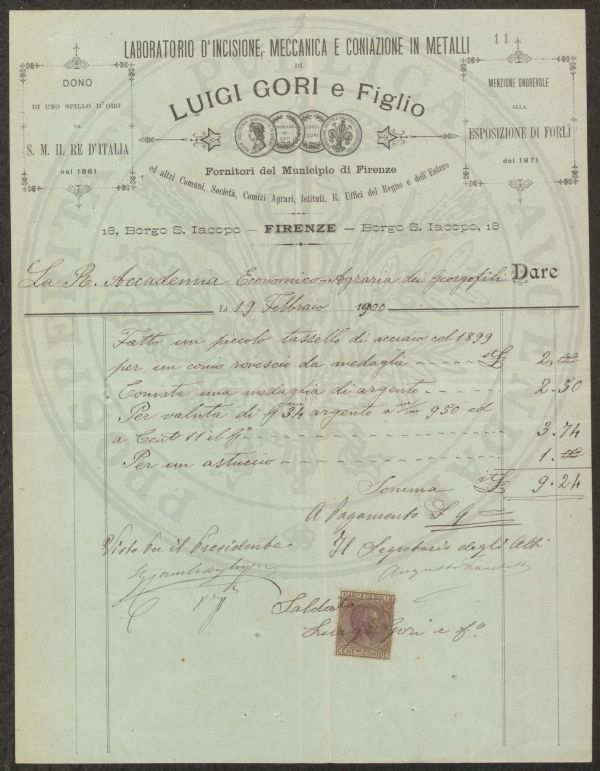 11
LABORATORIO D'INCISIONE, MECCANICA E CONIAZIONE IN METALLI
DI
LUIGI GORI e Figlio
DONO
DI UNO SPILLO D'ORO
DA
S. M. IL RE D'ITALIA
nel 1861
MENZIONE ONOREVOLE
ALLA
ESPOSIZIONE DI FORLÌ
del 1871
Fornitori del Municipio di Firenze
ed altri Comuni, Società, Comizi Agrari, Istituti, R. Uffici del Regno e dell'Estero
18, Borgo S. Iacopo — FIRENZE — Borgo S. Iacopo, 18
La R. Accademia Economico-Agraria dei Georgofili Dare
Lì 19 Febbraio 1900
Fatto un piccolo tassello di acciaio col 1899
per un conio rovescio da medaglia £ 2.00
Coniata una medaglia di argento 2.50
Per valuta di g 34 argento a m 950 ed
a Cent 11 il g 3.74
Per un astuccio 1.00
Somma £ 9.24
A Pagamento £ 9
Visto il Presidente
Il Segretario degli Atti
Saldato
MARCA DA BOLLO
Luigi Gori e fo
CENT. CINQUE